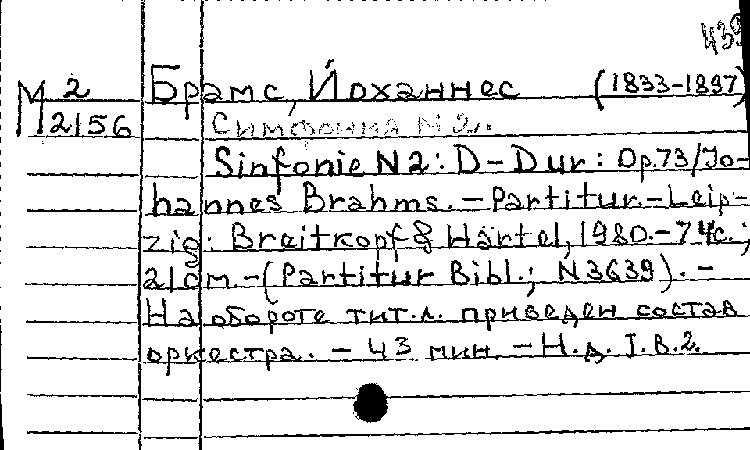 439
М 2
2156
Брамс, Йоханнес (1833-1897)
Симфония N2.
Sinfonie N2: D-Dur: Op.73/Jo-
hannes Brahms. - Partitur. - Leip-
zig: Breitkopf & Härtel, 1980. - 74с.;
21см. - (Partitur Bibl.; N3639). -
На обороте тит.л. приведен состав
оркестра. - 43 мин. - Н.д. J.B.2.